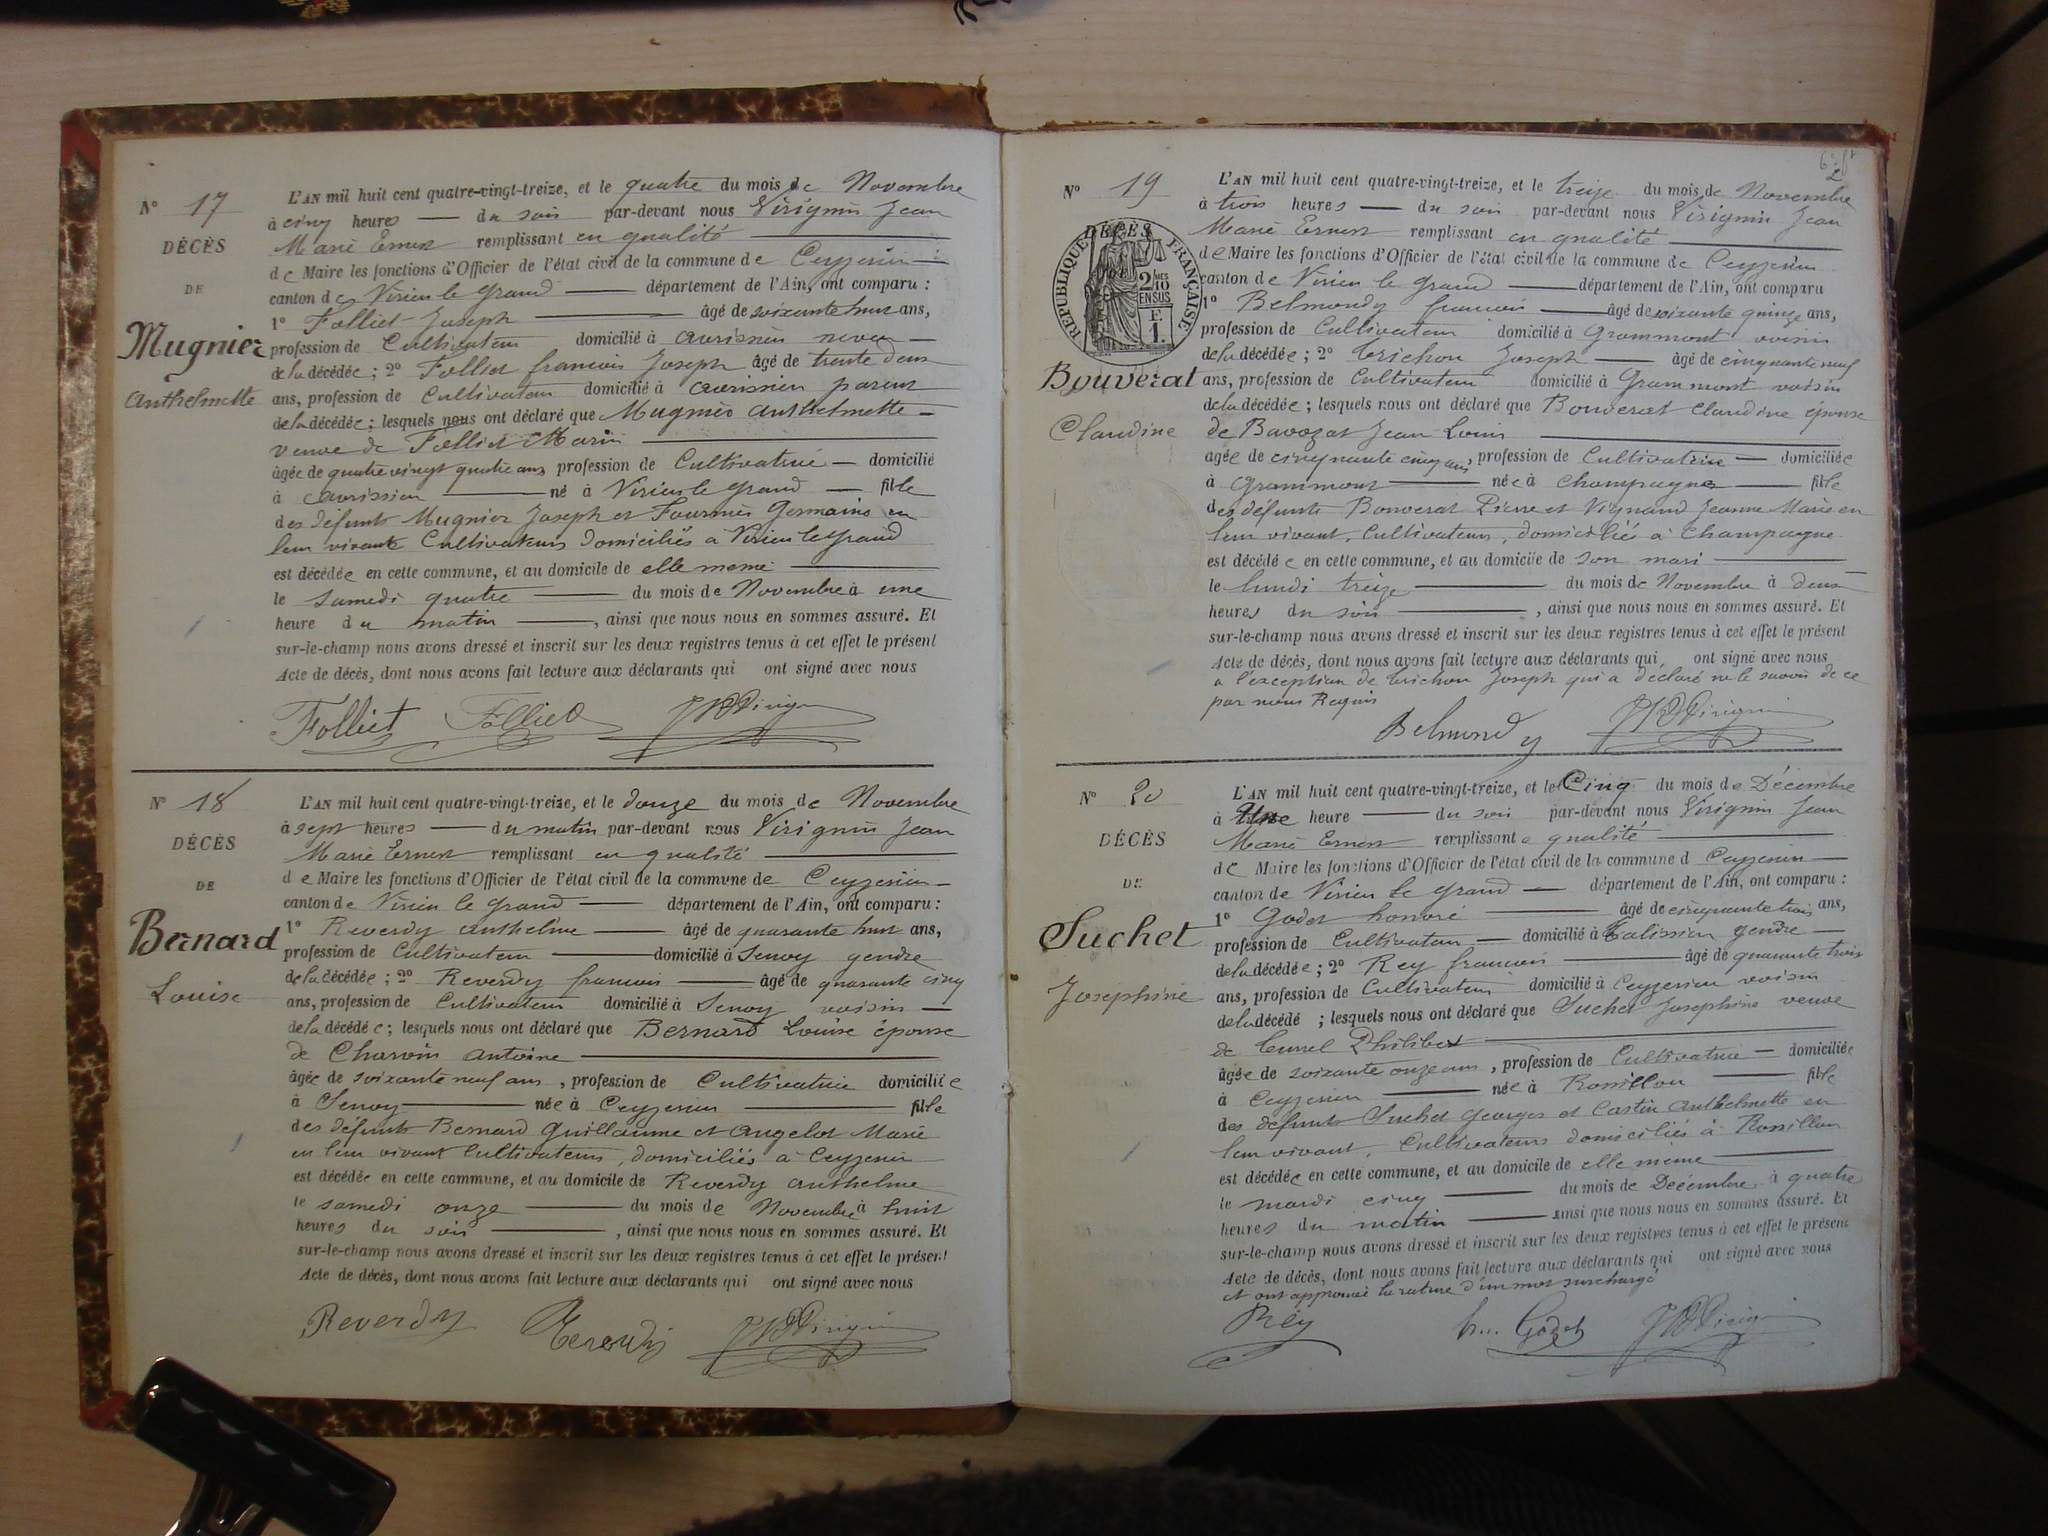 N° 17
DÉCÈS
DE
Mugnier
Anthelmette
L'AN mil huit cent quatre-vingt-treize, et le quatre du mois de Novembre
à cinq heures du soir par-devant nous Virignin Jean
Marie Ernest remplissant en qualité
de Maire les fonctions d'Officier de l'état civil de la commune de Ceyzerieu
canton de Virieu le Grand département de l'Ain, ont comparu :
1° Folliet Joseph âgé de soixante huit ans,
profession de Cultivateur domicilié à Avrissieu neveu
de la décédée ; 2° Folliet francois Joseph âgé de trente deux
ans, profession de Cultivateur domicilié à Avrissieu parent
de la décédée ; lesquels nous ont déclaré que Mugnier Anthelmette
veuve de Folliet Marin
âgée de quatre vingt quatre ans profession de Cultivatrice domicilié
à Avrissieu né à Virieu le grand fille
des défunts Mugnier Joseph et Germaine en
leur vivante Cultivateurs domiciliés a Virieu le grand
est décédée en cette commune, et au domicile de elle meme
le samedi quatre du mois de Novembre à une
heure du matin , ainsi que nous nous en sommes assuré. Et
sur-le-champ nous avons dressé et inscrit sur les deux registres tenus à cet effet le présent
Acte de décès, dont nous avons fait lecture aux déclarants qui ont signé avec nous
Folliet Folliet Virignin
N° 18
DÉCÈS
DE
Bernard
Louise
L'AN mil huit cent quatre-vingt-treize, et le douze du mois de Novembre
à sept heures du matin par-devant nous Virignin Jean
Marie Ernest remplissant en qualité
de Maire les fonctions d'Officier de l'état civil de la commune de Ceyzerieu
canton de Virieu le Grand département de l'Ain, ont comparu :
1° Reverdy Anthelme âgé de quarante huit ans,
profession de Cultivateur domicilié à Senoy gendre
de la décédée ; 2° Reverdy francois âgé de quarante cinq
ans, profession de Cultivateur domicilié à Senoy voisin
de la décédée ; lesquels nous ont déclaré que Bernard Louise épouse
de Charvin Antoine
âgée de soixante neuf ans , profession de Cultivatrice domiciliée
à Senoy née à Ceyzerieu fille
des défunts Bernard Guillaume et Angelot Marie
en leur vivant Cultivateurs, domiciliés a Ceyzerieu
est décédée en cette commune, et au domicile de Reverdy Anthelme
le samedi onze du mois de Novembre à huit
heures du soir , ainsi que nous nous en sommes assuré. Et
sur-le-champ nous avons dressé et inscrit sur les deux registres tenus à cet effet le présent
Acte de décès, dont nous avons fait lecture aux déclarants qui ont signé avec nous
Reverdy Reverdy Virignin
N° 19
DÉCÈS
RÉPUBLIQUE FRANÇAISE
Bouverat
Claudine
L'AN mil huit cent quatre-vingt-treize, et le treize du mois de Novembre
à trois heures du soir par-devant nous Virignin Jean
Marie Ernest remplissant en qualité
de Maire les fonctions d'Officier de l'état civil de la commune de Ceyzerieu
canton de Virieu le Grand département de l'Ain, ont comparu
1° Belmondy francois âgé de soixante quinze ans,
profession de Cultivateur domicilié à Grammont voisin
de la décédée ; 2° Trichon Joseph âgé de cinquante neuf
ans, profession de Cultivateur domicilié à Grammont voisin
de la décédée ; lesquels nous ont déclaré que Bouverat Claudine épouse
de Bavozat Jean Louis
agée de cinquante cinq ans, profession de Cultivatrice domiciliée
à Grammont née à Champagne fille
des défunts Bouverat Pierre et Vignand Jeanne Marie en
leur vivant, Cultivateurs, domiciliés à Champagne
est décédée en cette commune, et au domicile de son mari
le lundi treize du mois de Novembre à deux
heures du soir , ainsi que nous nous en sommes assuré. Et
sur-le-champ nous avons dressé et inscrit sur les deux registres tenus à cet effet le présent
Acte de décès, dont nous avons fait lecture aux déclarants qui, ont signé avec nous
a l'exception de Trichon Joseph qui a déclaré ne le savoir de ce
par nous Requis
Belmondy Virignin
N° 20
DÉCÈS
DE
Suchet
Josephine
L'AN mil huit cent quatre-vingt-treize, et le Cinq du mois de Décembre
à Une heure du soir par-devant nous Virignin Jean
Marie Ernest remplissant e qualité
de Maire les fonctions d'Officier de l'état civil de la commune d Ceyzerieu
canton de Virieu le Grand département de l'Ain, ont comparu :
1° Godet honoré âgé de cinquante trois ans,
profession de Cultivateur domicilié à Talissieu gendre
de la décédée ; 2° Rey francois âgé de quarante trois
ans, profession de Cultivateur domicilié à Ceyzerieu voisin
de la décédé ; lesquels nous ont déclaré que Suchet Josephine veuve
de Philibert
âgée de soixante onze ans , profession de Cultivatrice domiciliée
à Ceyzerieu née à Rossillon fille
des défunts Suchet Georges et Castin Anthelmette en
leur vivant, Cultivateurs domiciliés à Rossillon
est décédée en cette commune, et au domicile de elle meme
le mardi cinq du mois de Décembre à quatre
heures du matin ainsi que nous nous en sommes assuré. Et
sur-le-champ nous avons dressé et inscrit sur les deux registres tenus à cet effet le présent
Acte de décès, dont nous avons fait lecture aux déclarants qui ont signé avec nous
et ont approuvé la rature d'un mot surchargé
Rey Godet Virignin